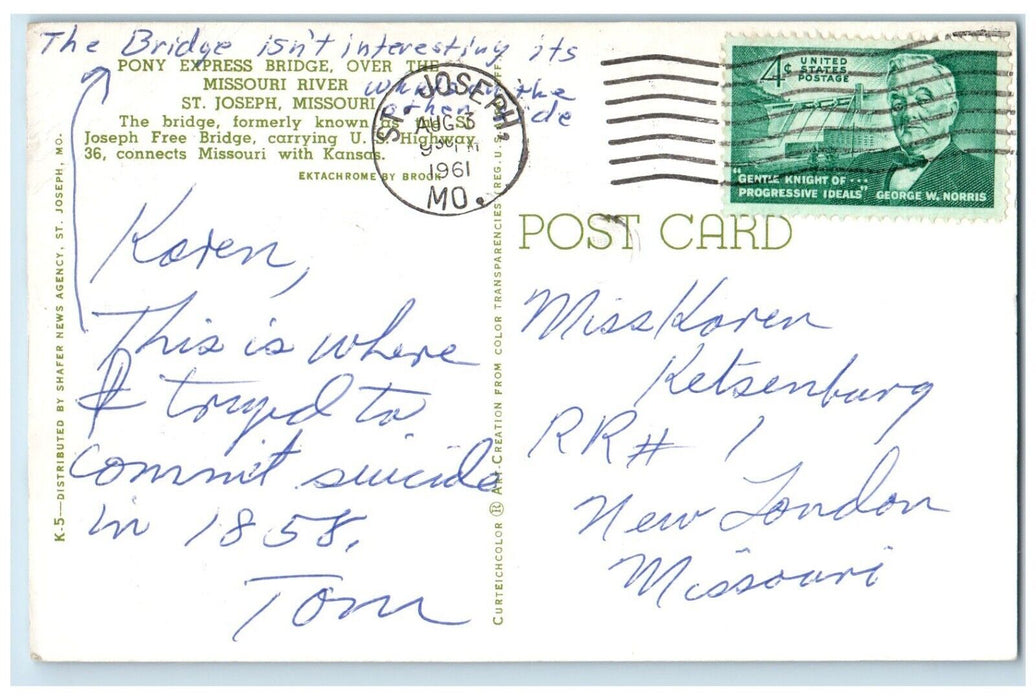 The Bridge isn't interesting its
what's on the
other side
PONY EXPRESS BRIDGE, OVER THE
MISSOURI RIVER
ST. JOSEPH, MISSOURI
The bridge, formerly known as the St.
Joseph Free Bridge, carrying U. S. Highway
36, connects Missouri with Kansas.
EKTACHROME BY BROOK
ST. JOSEPH,
AUG 3
1961
MO.
4¢ UNITED
STATES
POSTAGE
"GENTLE KNIGHT OF ...
PROGRESSIVE IDEALS" GEORGE W. NORRIS
K-5—DISTRIBUTED BY SHAFER NEWS AGENCY, ST. JOSEPH, MO.
CURTEICHCOLOR ® ART-CREATION FROM COLOR TRANSPARENCIES (REG. U.S.A.
POST CARD
Karen,
This is where
I tryed to
commit suicide
in 1858.
Tom
Miss Karen
Ketsenburg
RR# 1
New London
Missouri